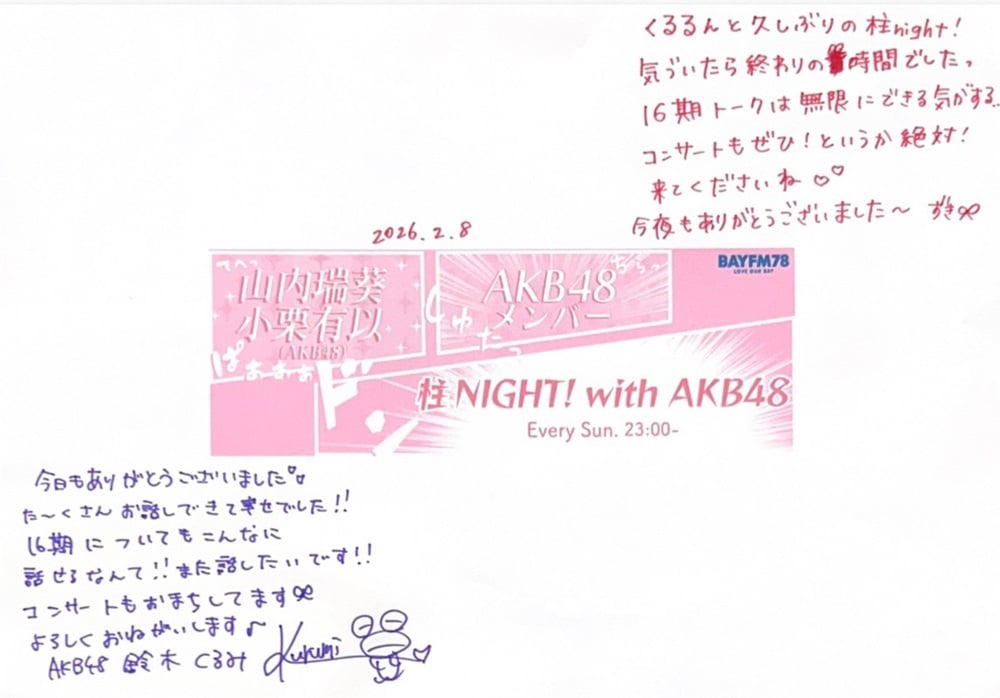 くるるんと久しぶりの柱night!
気づいたら終わりの時間でしたっ
16期トークは無限にできる気がする..
コンサートもぜひ!というか絶対!
来てくださいね♡♡
今夜もありがとうございました〜 ずき
2026.2.8
てへっ
山内瑞葵
小栗有以
(AKB48)
ぱぁぁぁぁ
ドン
しゅたっ
ちらっ
AKB48
メンバー
BAYFM78
LOVE OUR BAY
柱NIGHT! with AKB48
Every Sun. 23:00-
今日もありがとうございました♡
た〜くさんお話しできて幸せでした!!
16期についてもこんなに
話せるなんて!!また話したいです!!
コンサートもおまちしてます
よろしくおねがいします♪
AKB48 鈴木くるみ
Kurumi